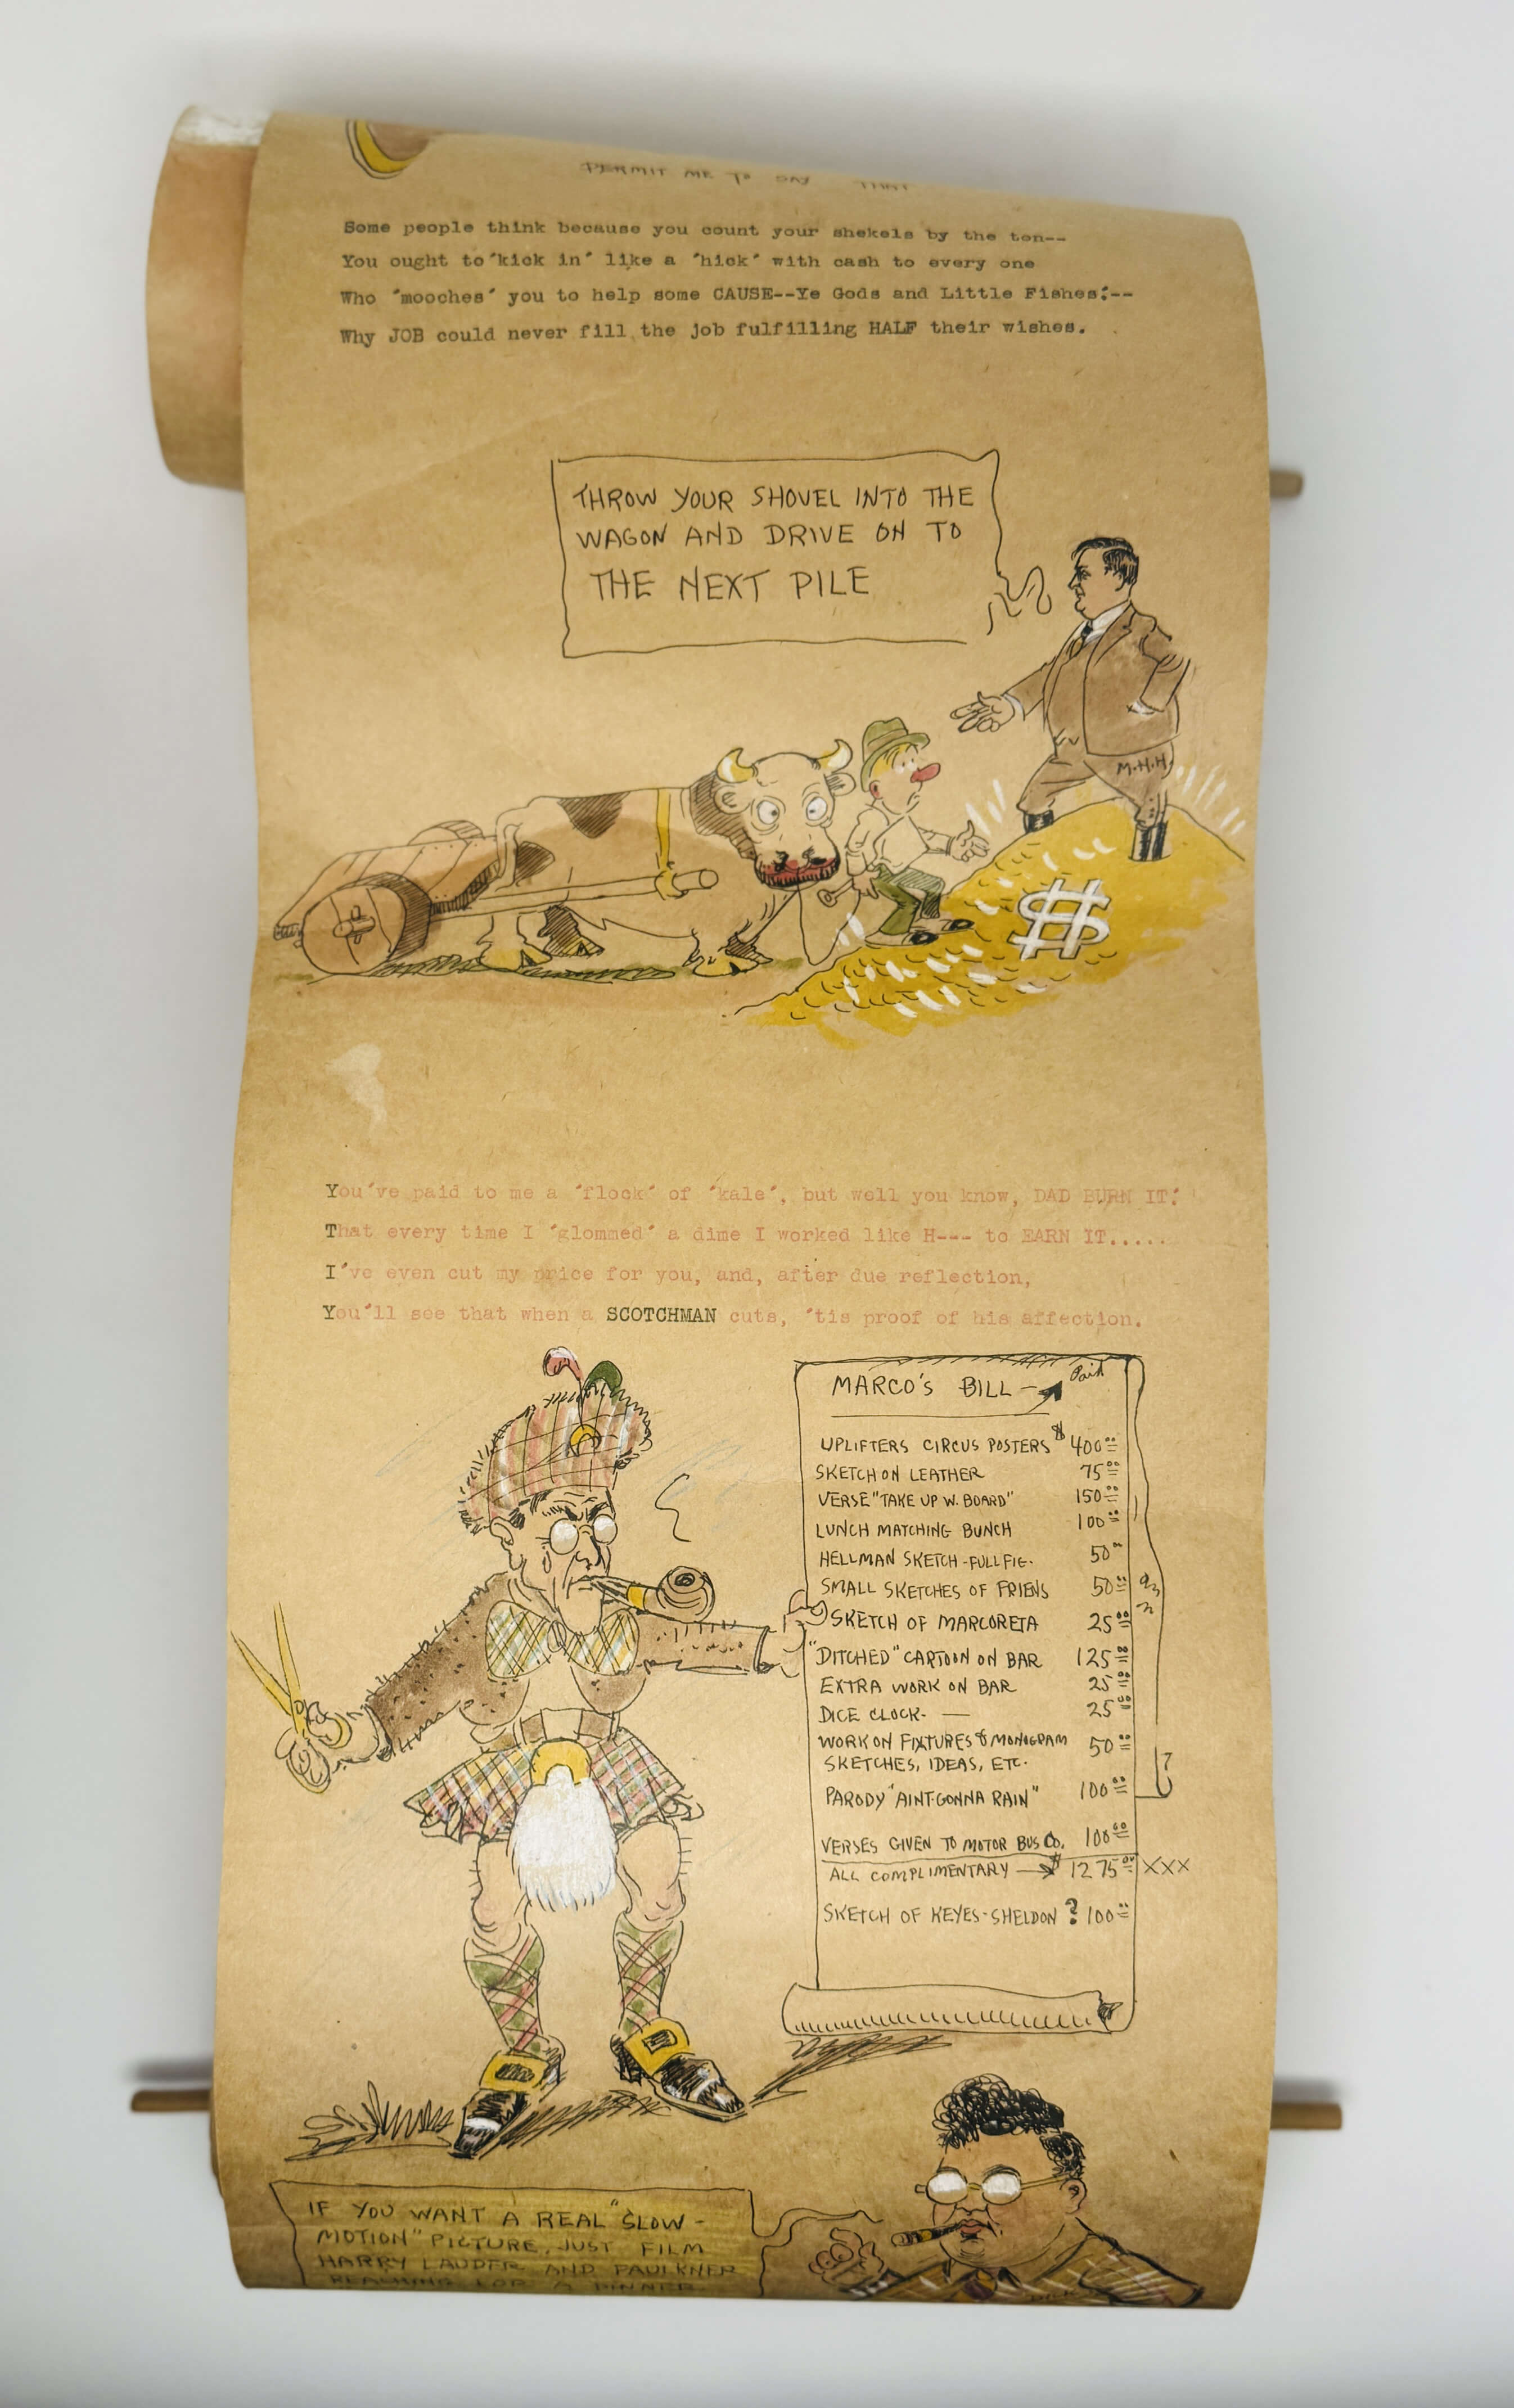 PERMIT ME TO SAY THAT
Some people think because you count your shekels by the ton--
You ought to "kick in" like a "hick" with cash to every one
Who "mooches" you to help some CAUSE--Ye Gods and Little Fishes!--
Why JOB could never fill the job fulfilling HALF their wishes.
THROW YOUR SHOVEL INTO THE
WAGON AND DRIVE ON TO
THE NEXT PILE
M.H.H.
$
You've paid to me a "flock" of "kale", but well you know, DAD BURN IT!
That every time I "glommed" a dime I worked like H--- to EARN IT.....
I've even cut my price for you, and, after due reflection,
You'll see that when a SCOTCHMAN cuts, 'tis proof of his affection.
MARCO'S BILL - Paid
UPLIFTERS CIRCUS POSTERS $400.00
SKETCH ON LEATHER 75.00
VERSE "TAKE UP W. BOARD" 150.00
LUNCH MATCHING BUNCH 100.00
HELLMAN SKETCH-FULL FIG. 50.00
SMALL SKETCHES OF FRIENS 50.00
SKETCH OF MARCORETA 25.00
"DITCHED" CARTOON ON BAR 125.00
EXTRA WORK ON BAR 25.00
DICE CLOCK. — 25.00
WORK ON FIXTURES & MONOGRAM 50.00
SKETCHES, IDEAS, ETC.
PARODY "AINT-GONNA RAIN" 100.00
VERSES GIVEN TO MOTOR BUS CO. 100.00
ALL COMPLIMENTARY → $1275.00 XXX
SKETCH OF KEYES-SHELDON ? 100.00
IF YOU WANT A REAL "SLOW-
MOTION" PICTURE, JUST FILM
HARRY LAUDER AND FAULKNER
REACHING FOR A DINNER